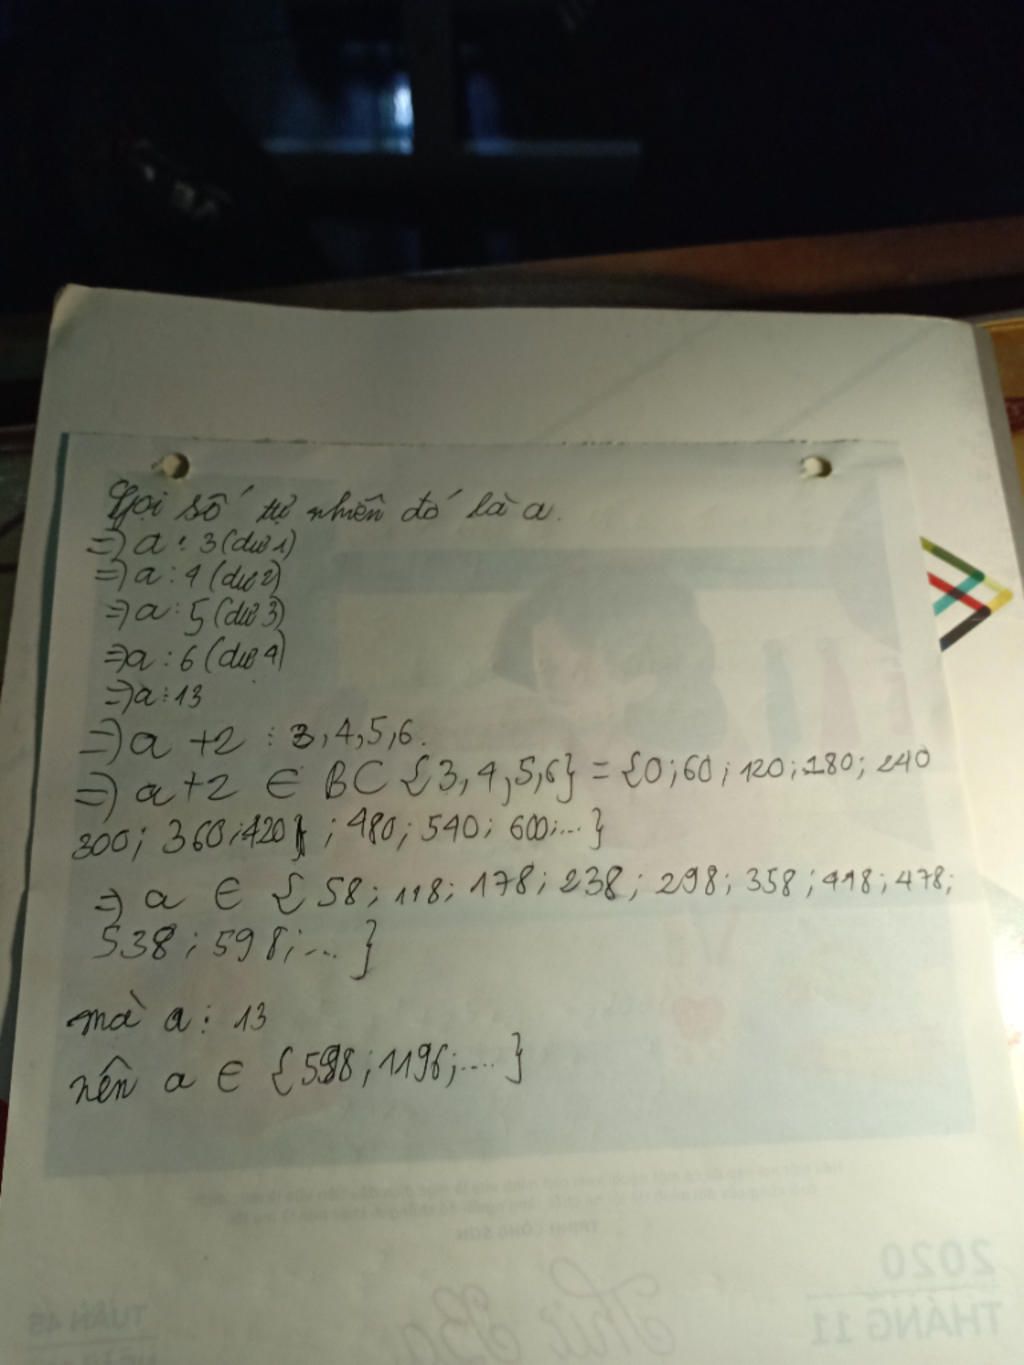 Gọi số tự nhiên đó là a.
=> a : 3 (dư 1)
=> a : 4 (dư 2)
=> a : 5 (dư 3)
=> a : 6 (dư 4)
=> a ⋮ 13
=> a + 2 ⋮ 3, 4, 5, 6.
=> a + 2 ∈ BC {3, 4, 5, 6} = {0; 60; 120; 180; 240
300; 360; 420; 480; 540; 600; ... }
=> a ∈ {58; 118; 178; 238; 298; 358; 418; 478;
538; 598; ... }
mà a ⋮ 13
nên a ∈ {598; 1196; .... }
TRỊNH CÔNG SƠN
2020
THÁNG 11
TUẦN 45
Thứ Ba